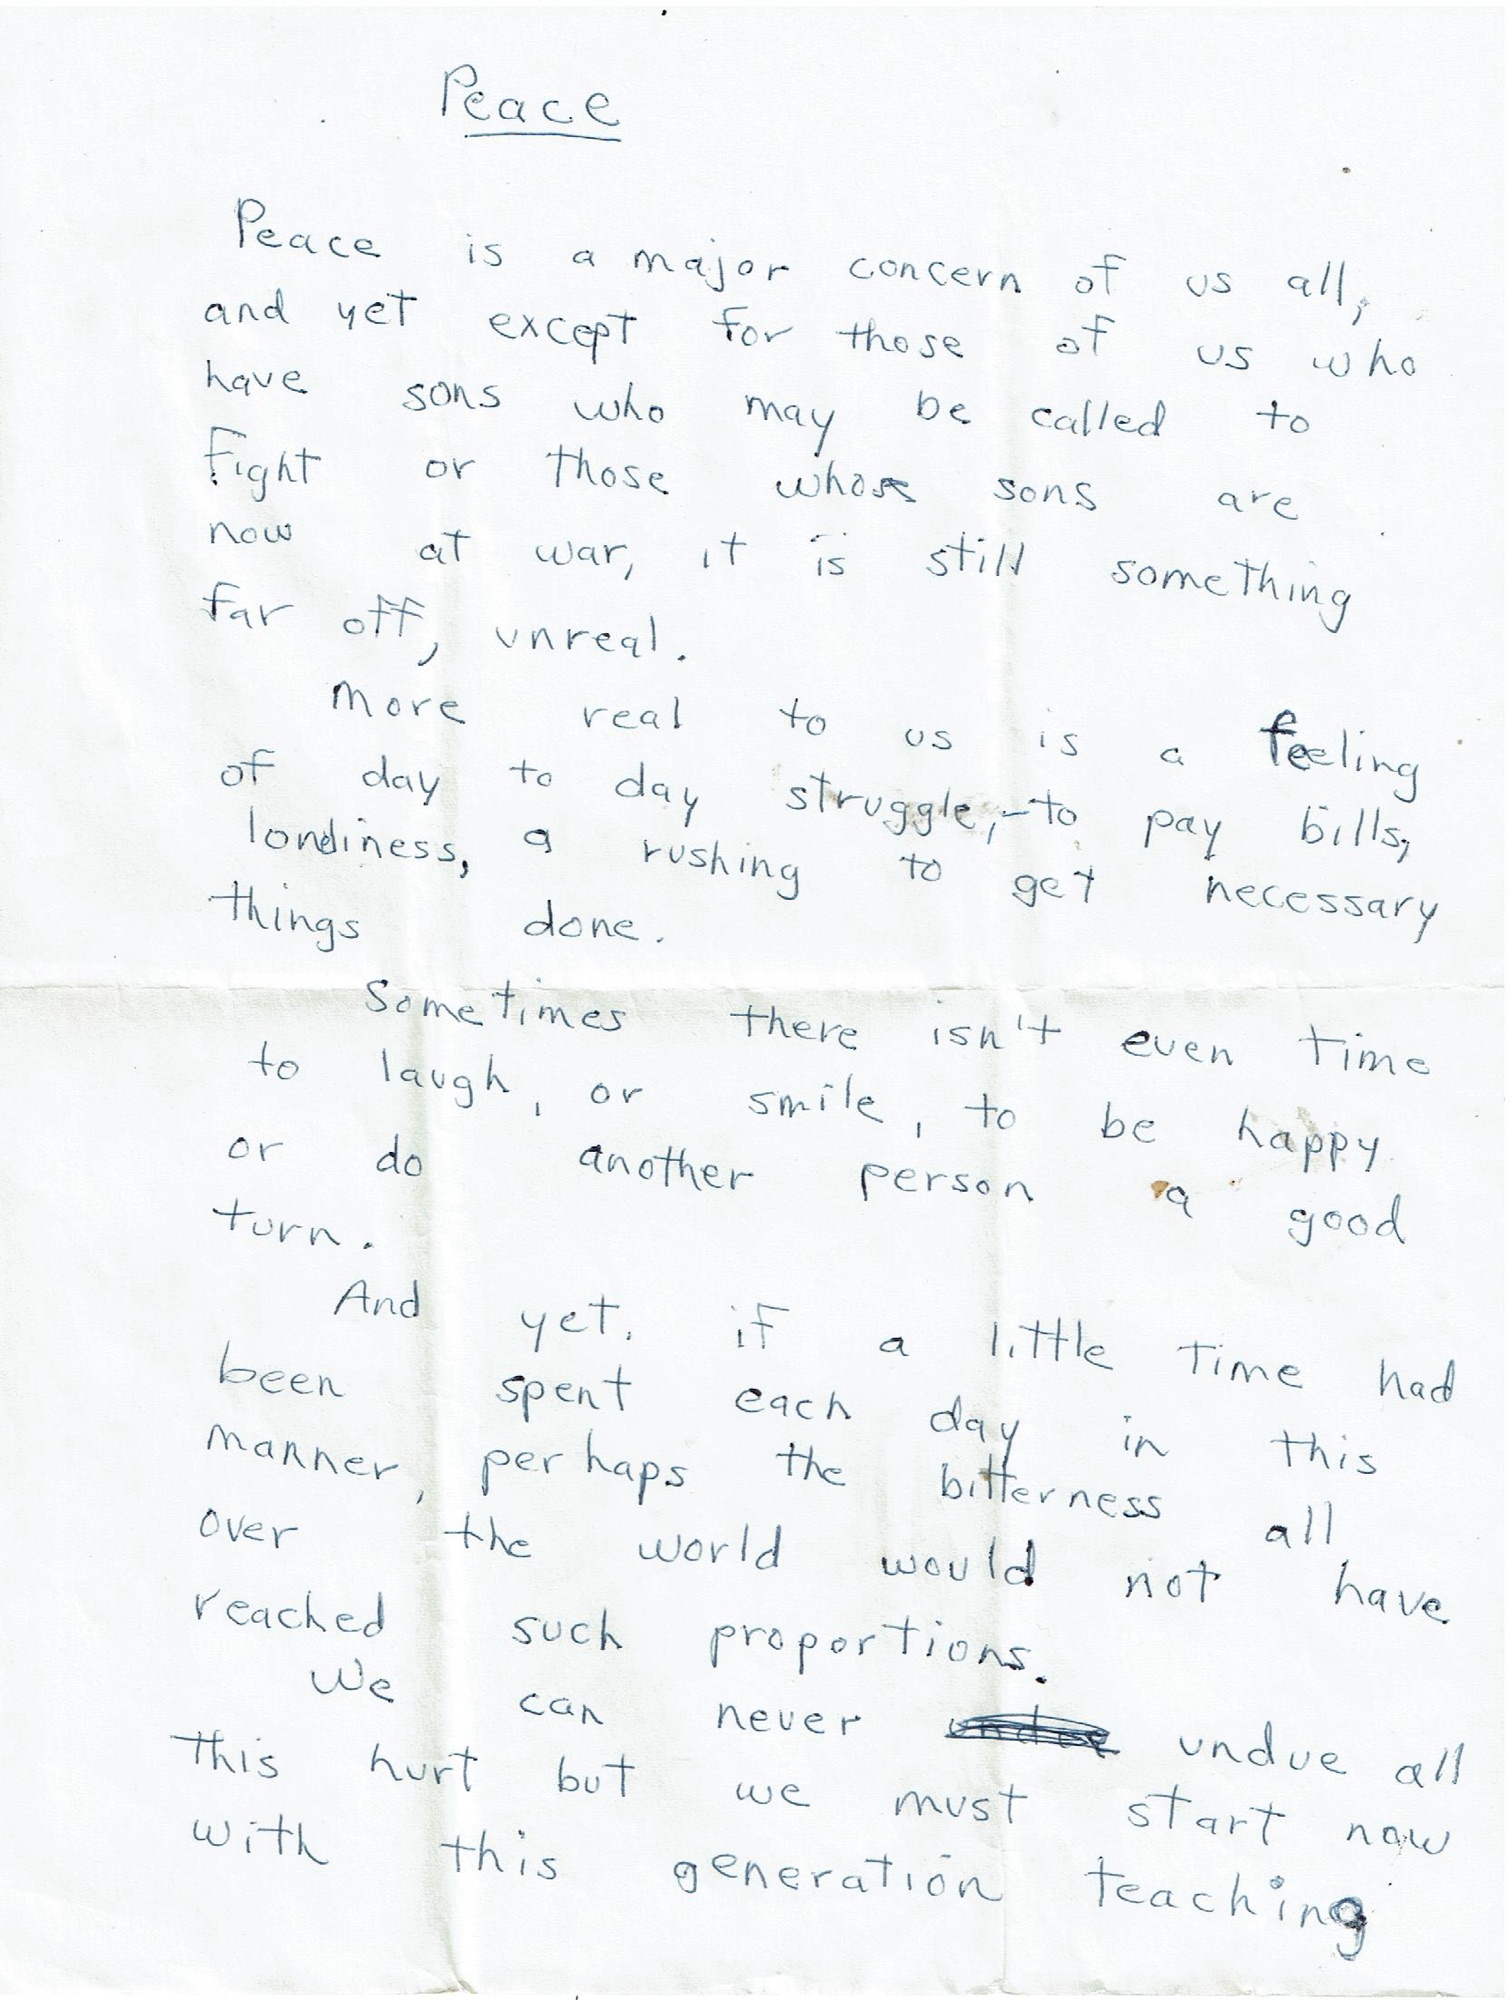 Peace
Peace is a major concern of us all,
and yet except for those of us who
have sons who may be called to
fight or those whose sons are
now at war, it is still something
far off, unreal.
More real to us is a feeling
of day to day struggle, - to pay bills,
londiness, a rushing to get necessary
things done.
Sometimes there isn't even time
to laugh, or smile, to be happy
or do another person a good
turn.
And yet, if a little time had
been spent each day in this
manner, perhaps the bitterness all
over the world would not have
reached such proportions.
We can never undue all
this hurt but we must start now
with this generation teaching